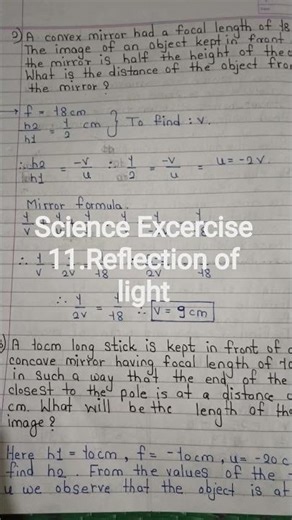 2) A convex mirror had a focal length of 18
The image of an object kept in front
the mirror is half the height of the o
What is the distance of the object from
the mirror?
→ f = 18 cm
h2/h1 = 1/2 cm } To find : v.
∴ h2/h1 = -v/u ∴ 1/2 = -v/u = u = -2v
Mirror formula.
Science Excercise
11.Reflection of
light
∴ 1/2v = 1/18 ∴ v = 9 cm
A 10cm long stick is kept in front of a
concave mirror having focal length of 10
in such a way that the end of the
closest to the pole is at a distance o
cm. What will be the length of the
image?
Here h1 = 10cm, f = -10cm, u = -20 c
find h2. From the values of the
u we observe that the object is at